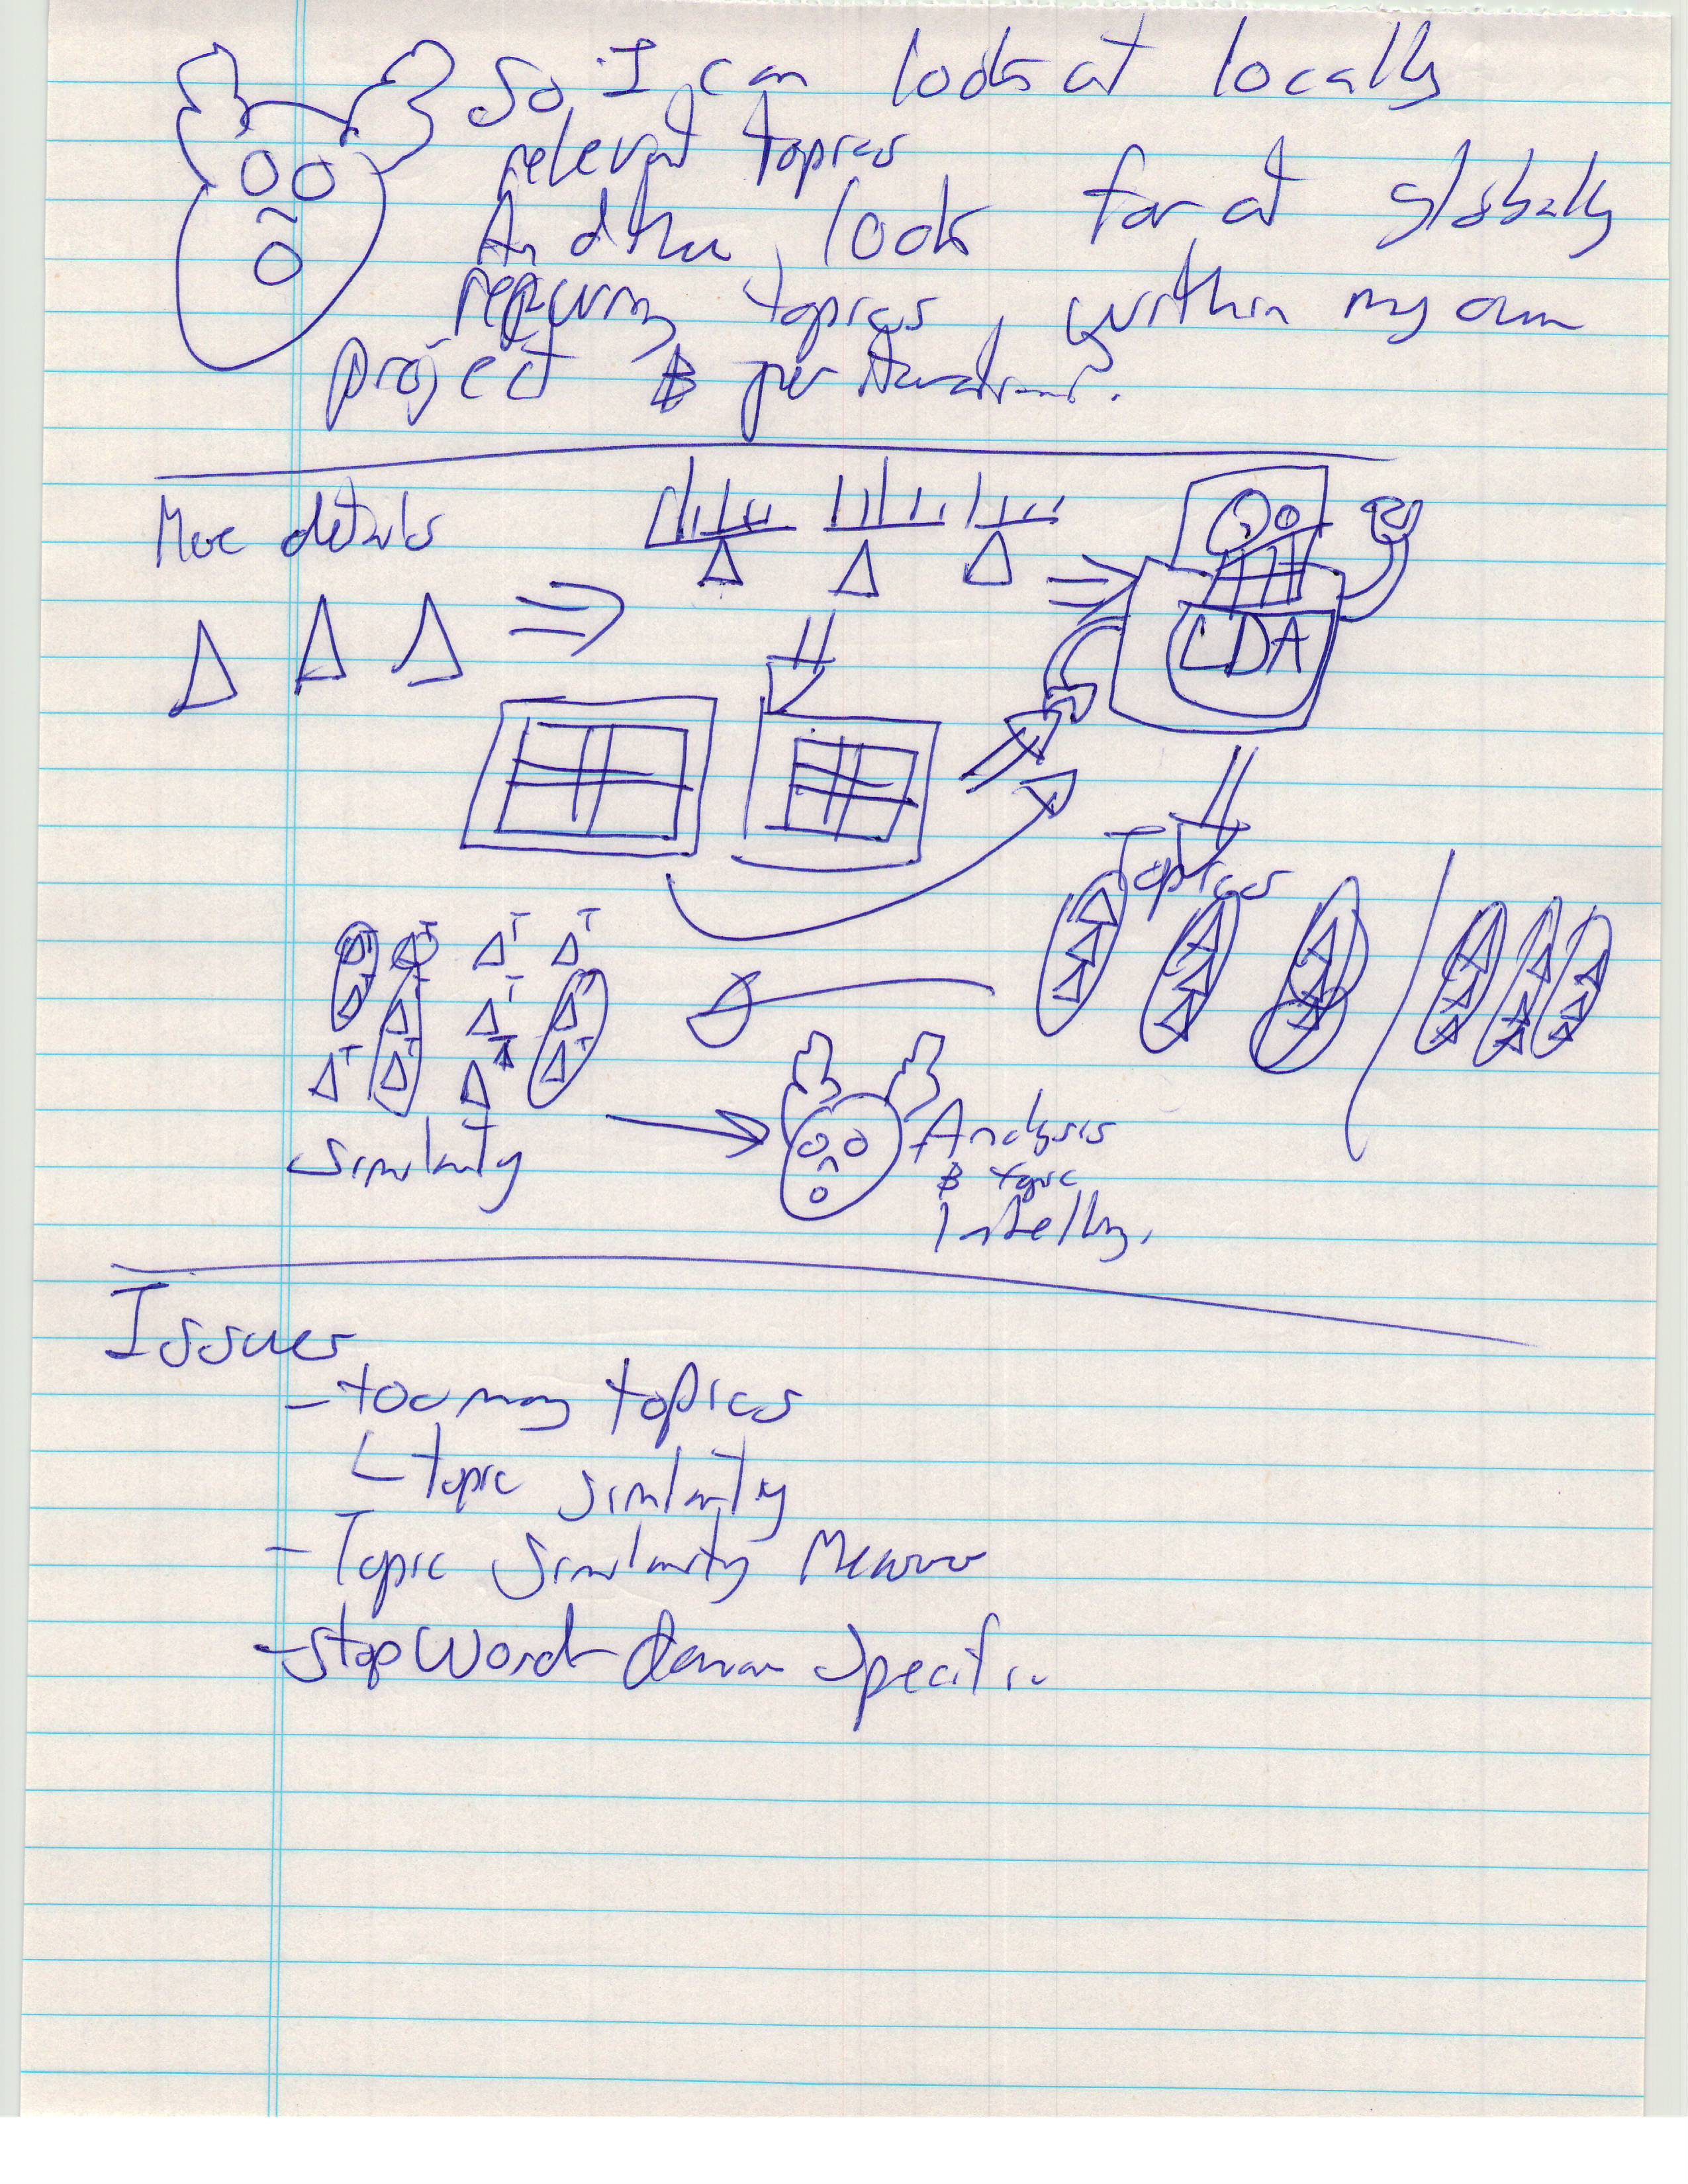 So I can look at locally
relevant topics
And then, look for at globally
recurring topics, within my own
project & per iteration?
More details
LDA
Topics
T T T T
T T T T
T T T T
Similarity
Analysis
& topic
Intelling.
Issues
- too many topics
└ topic similarity
- Topic Similarity Measure
- stop Word domain specific